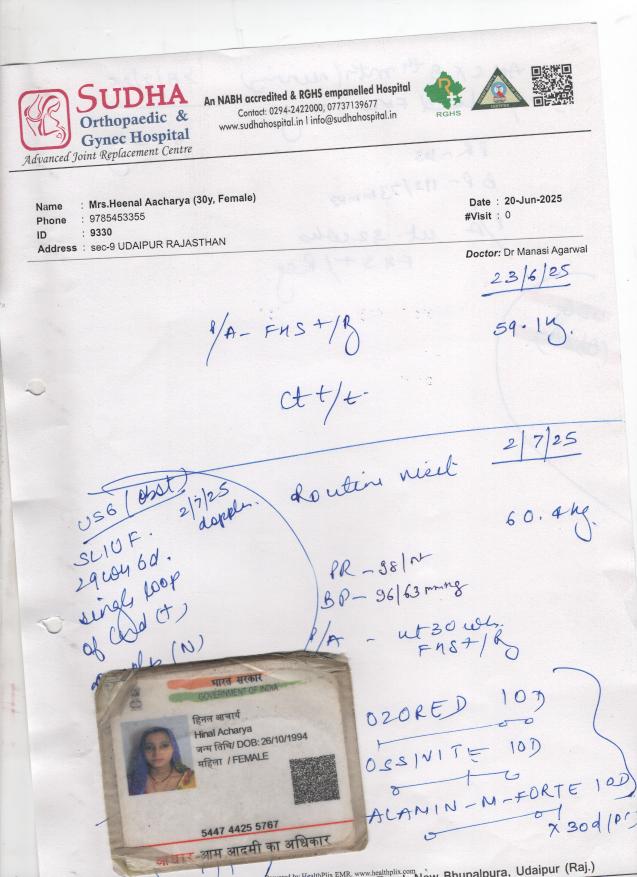 SUDHA
Orthopaedic &
Gynec Hospital
Advanced Joint Replacement Centre
An NABH accredited & RGHS empanelled Hospital
Contact: 0294-2422000, 07737139677
www.sudhahospital.in | info@sudhahospital.in
RGHS
Name : Mrs.Heenal Aacharya (30y, Female)
Phone : 9785453355
ID : 9330
Address : sec-9 UDAIPUR RAJASTHAN
Date : 20-Jun-2025
#Visit : 0
Doctor: Dr Manasi Agarwal
23/6/25
P/A - FHS +/R
59.1 kg.
Ct +/t
2/7/25
Routine visit
60.4 kg.
USG (obst)
2/7/25
doppler.
SLIUF.
29w 6d.
single loop
of cord (+)
(N)
PR - 98/mt
BP - 96/63 mmHg
P/A - ut 30 wks.
FHS +/R
OZORED 1OD
OSSINITE 1OD
ALAMIN-M-FORTE 1OD
x 30d
भारत सरकार
GOVERNMENT OF INDIA
हिनल आचार्य
Hinal Acharya
जन्म तिथि/ DOB: 26/10/1994
महिला / FEMALE
5447 4425 5767
आधार-आम आदमी का अधिकार
by HealthPlix EMR. www.healthplix.com
New Bhupalpura, Udaipur (Raj.)